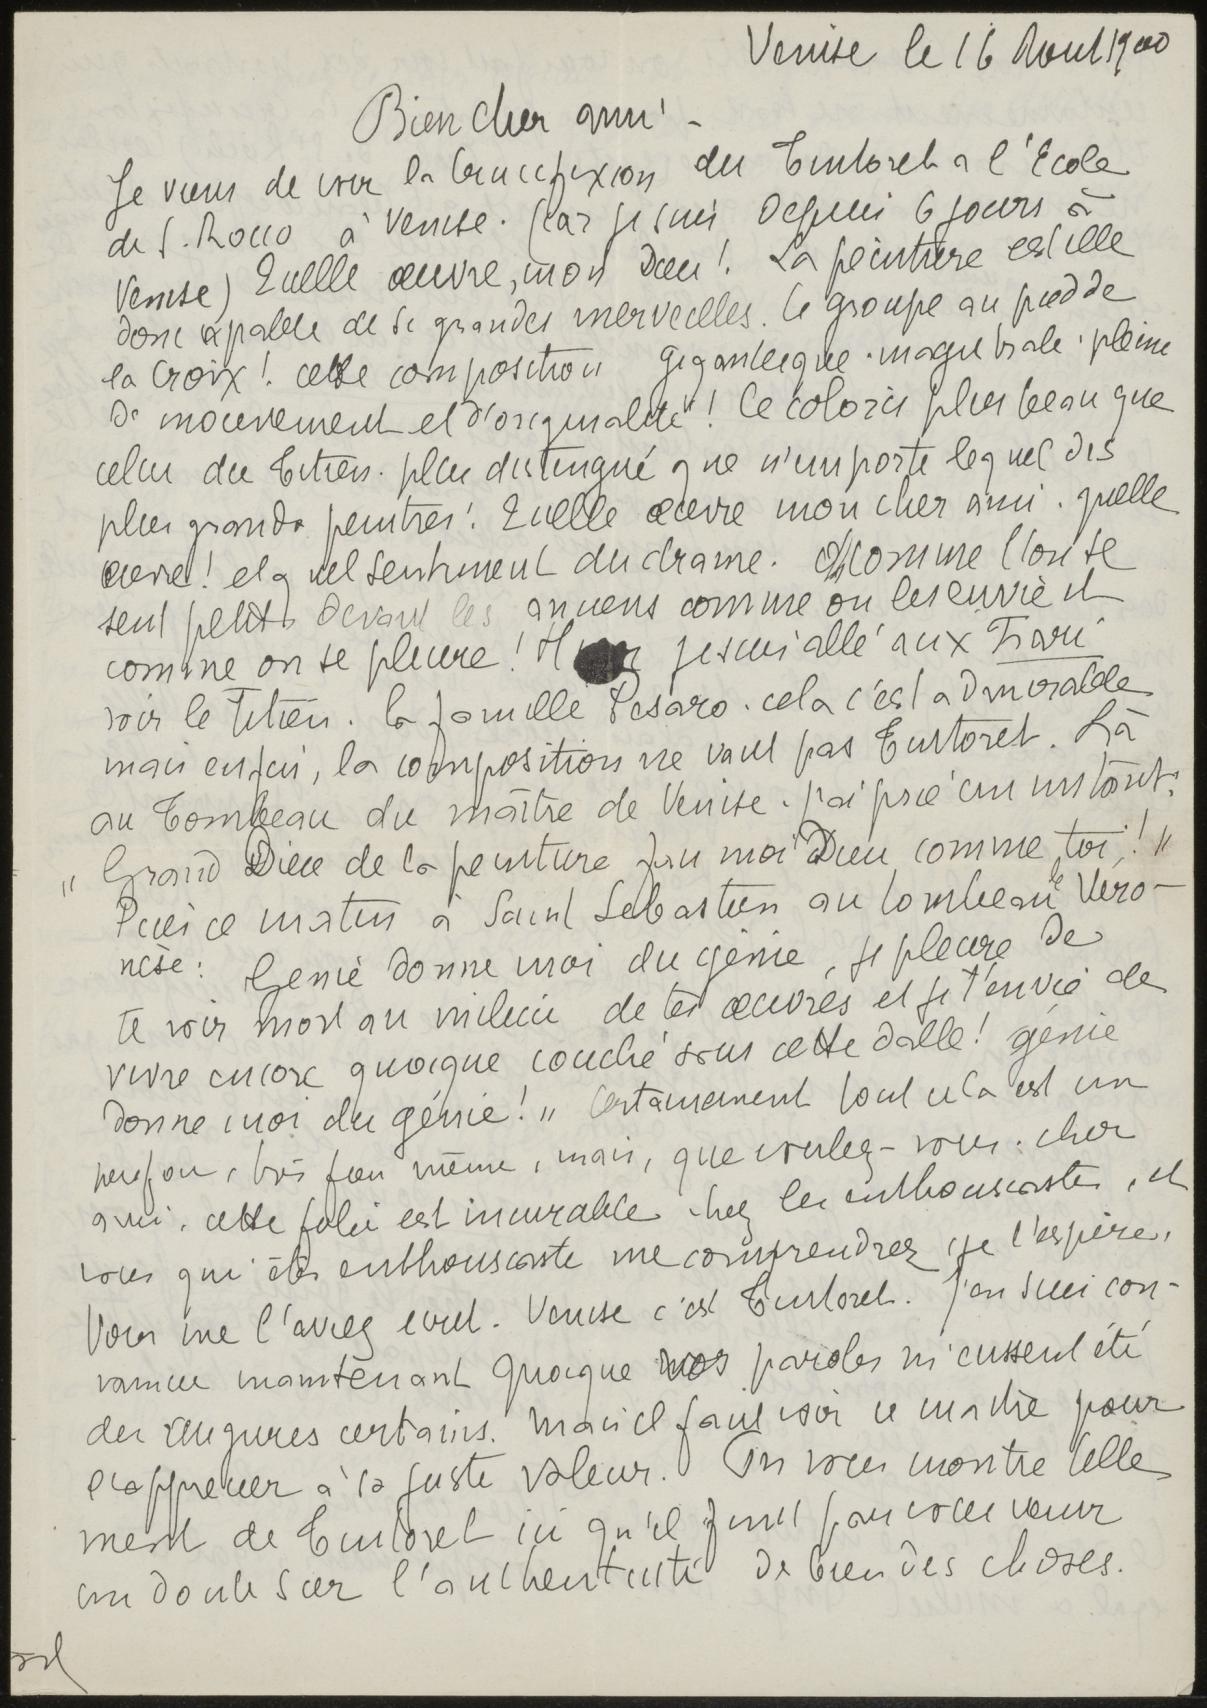 Venise le 16 Aout 1900
Bien cher ami -
Je viens de voir la Crucifixion du Tintoret a l'Ecole
de S. Rocco à Venise. (car je suis depuis 6 jours à
Venise) Quelle œuvre, mon Dieu! La peinture est elle
donc capable de si grandes merveilles. Le groupe au pied de
la Croix! cette composition gigantesque. magistrale. pleine
de mouvement et d'originalité! Ce coloris plus beau que
celui du Titien. plus distingué que n'importe lequel des
plus grands peintres! Quelle œuvre mon cher ami. quelle
œuvre! et quel sentiment du drame. Comme l'on se
sent petits devant les anciens comme on les envie et
comme on se pleure! Hier je suis allé aux Frari
voir le Titien. la famille Pesaro. cela c'est admirable
mais enfin, la composition ne vaut pas Tintoret. Là
au Tombeau du maître de Venise. j'ai prié un instant:
" Grand Dieu de la peinture fais moi Dieu comme toi! "
Puis ce matin à Saint Sebastien au tombeau de Véro-
nèse: Genie donne moi du génie, je pleure de
te voir mort au milieu de tes œuvres et je t'envie de
vivre encore quoique couché sous cette dalle! génie
donne moi du génie! " Certainement tout cela est un
peu fou, très fou même, mais, que voulez-vous. cher
ami. cette folie est incurable chez les enthousiastes, et
vous qui êtes enthousiaste me comprendrez, je l'espère.
Vous me l'aviez ecrit. Venise c'est Tintoret. J'en suis con-
vaincu maintenant quoique vos paroles m'eussent été
des augures certains. Mais il faut voir ce maitre pour
l'apprecier à sa juste valeur. On vous montre telle
ment de Tintoret ici qu'il finit par vous venir
un doute sur l'authenticité de bien des choses.